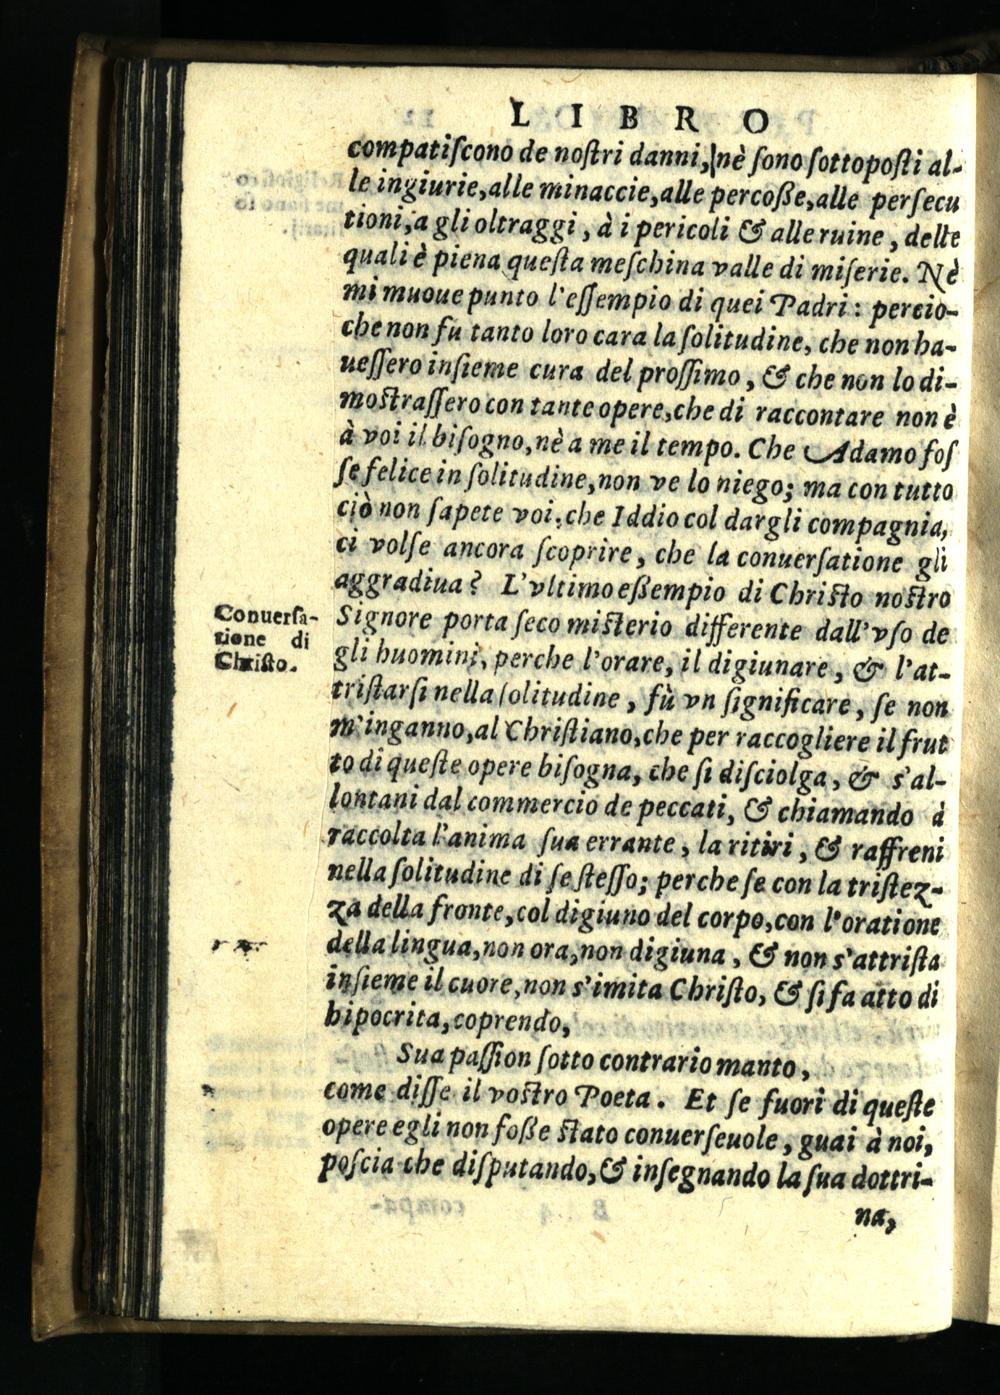 LIBRO
compatiscono de nostri danni, nè sono sottoposti al-
le ingiurie, alle minaccie, alle percosse, alle persecu
tioni, a gli oltraggi, à i pericoli & alle ruine, delle
quali è piena questa meschina valle di miserie. Nè
mi muoue punto l'essempio di quei Padri: percio-
che non fu tanto loro cara la solitudine, che non ha-
uessero insieme cura del prossimo, & che non lo di-
mostrassero con tante opere, che di raccontare non è
à voi il bisogno, nè a me il tempo. Che Adamo fos
se felice in solitudine, non ve lo niego; ma con tutto
ciò non sapete voi, che Iddio col dargli compagnia,
ci volse ancora scoprire, che la conuersatione gli
aggradiua? L'vltimo essempio di Christo nostro
Conuersa-
tione di
Christo.
Signore porta seco misterio differente dall'vso de
gli huomini, perche l'orare, il digiunare, & l'at-
tristarsi nella solitudine, fù vn significare, se non
m'inganno, al Christiano, che per raccogliere il frut
to di queste opere bisogna, che si disciolga, & s'al-
lontani dal commercio de peccati, & chiamando à
raccolta l'anima sua errante, la ritiri, & raffreni
nella solitudine di se stesso; perche se con la tristez-
za della fronte, col digiuno del corpo, con l'oratione
della lingua, non ora, non digiuna, & non s'attrista
insieme il cuore, non s'imita Christo, & si fa atto di
hipocrita, coprendo,
Sua passion sotto contrario manto,
come disse il vostro Poeta. Et se fuori di queste
opere egli non fosse stato conuerseuole, guai à noi,
poscia che disputando, & insegnando la sua dottri-
na,